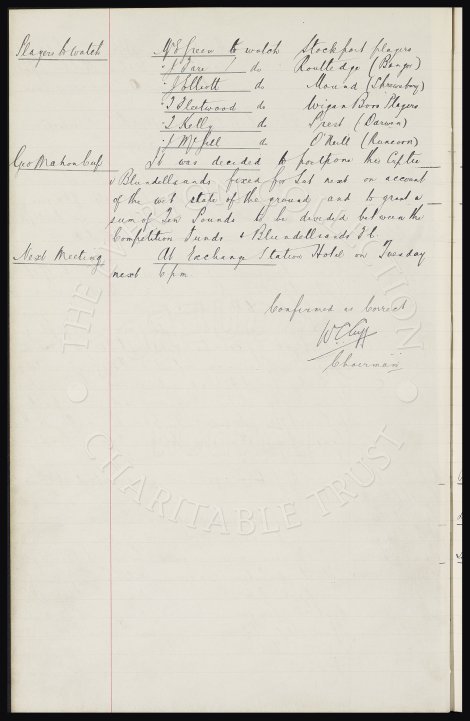 Players to Watch Mr E Green to watch Stockport players
" J Fare / do Routledge (Bangor)
" J Elliott do Mound (Shrewsbury)
" T Fleetwood do Wigan Boro Players
" T Kelly do Prest (Darwen)
" J McGill do O'Neill (Runcorn)
Geo Mahon Cup It was decided to postpone this Cup tie
v Blundellsands fixed for Sat next on account
of the wet state of the ground and to grant a
sum of Ten Pounds to be divided between the
Competition Funds & Blundellsands F.C.
Next Meeting At Exchange Station Hotel on Tuesday
next 6 pm
Confirmed as Correct
W. C. Cuff
Chairman
CHARITABLE TRUST